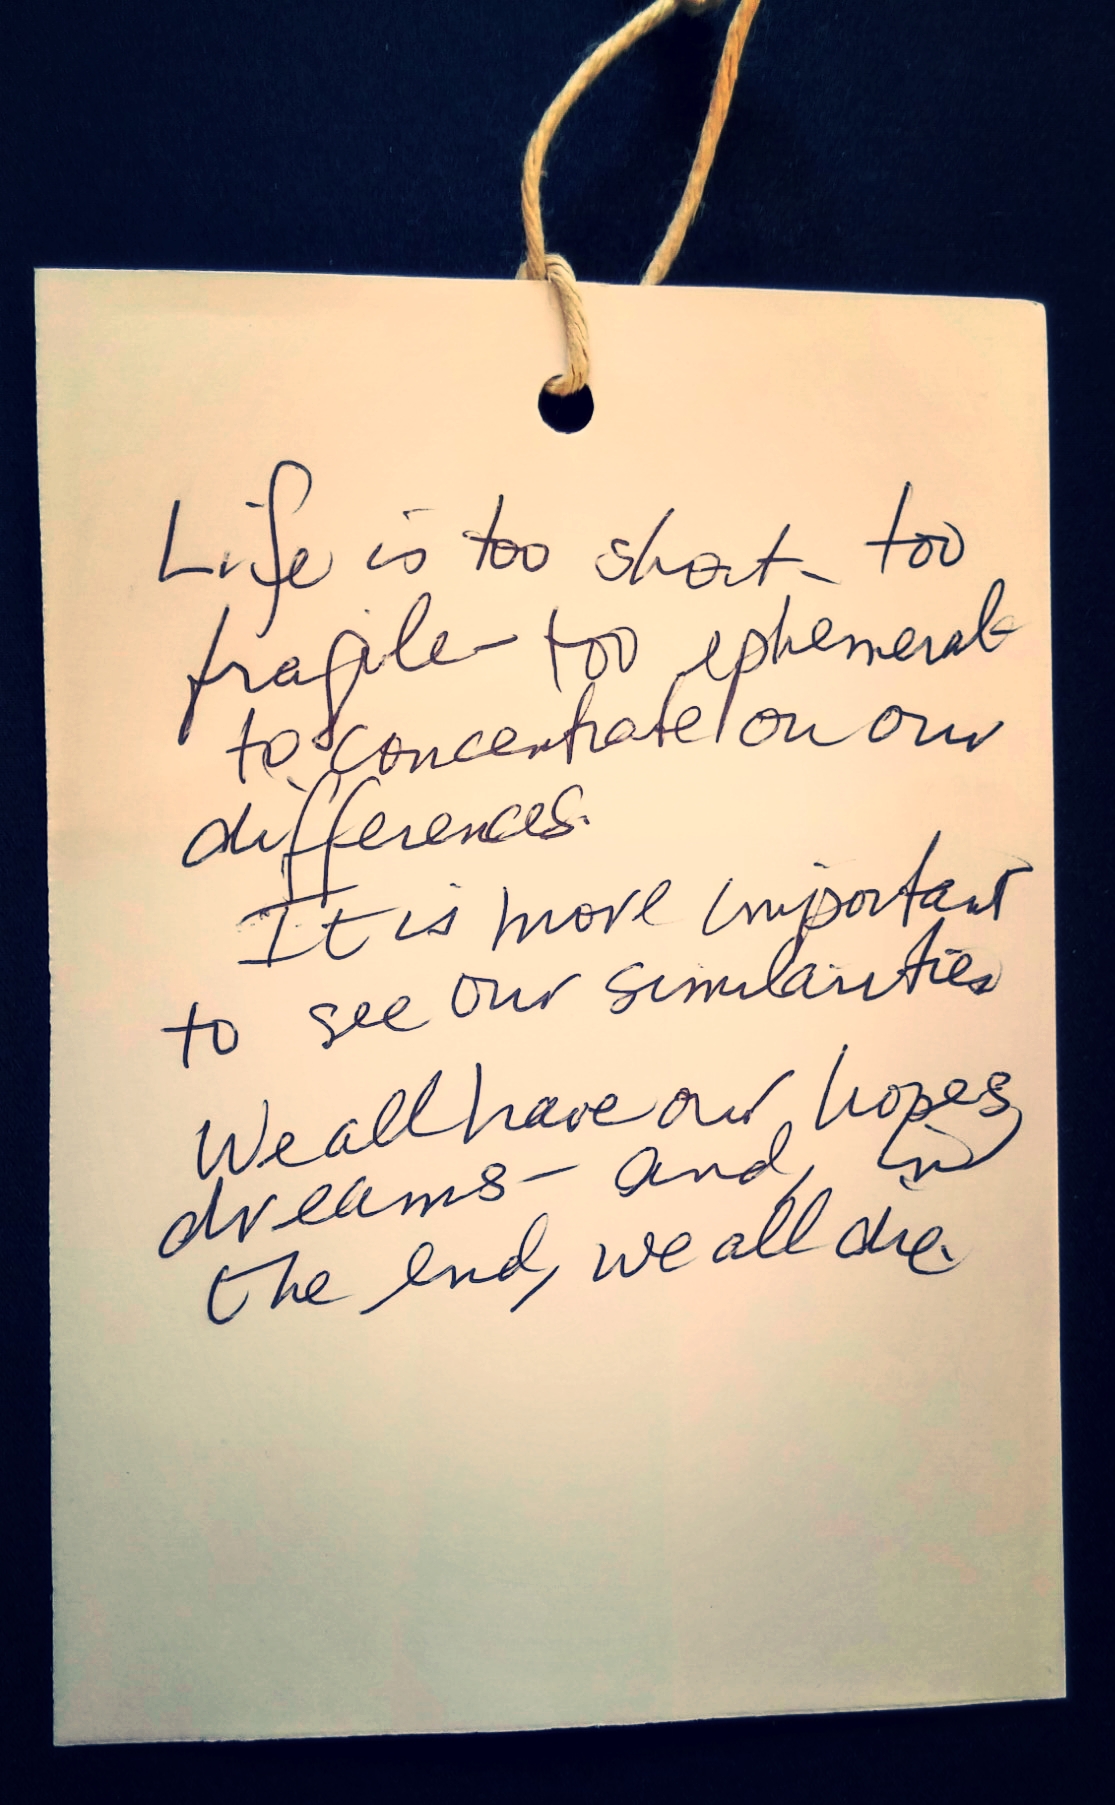 Life is too short - too
fragile - too ephemeral -
to concentrate on our
differences.
It is more important
to see our similarities
We all have our hopes,
dreams - and, in
the end, we all die.